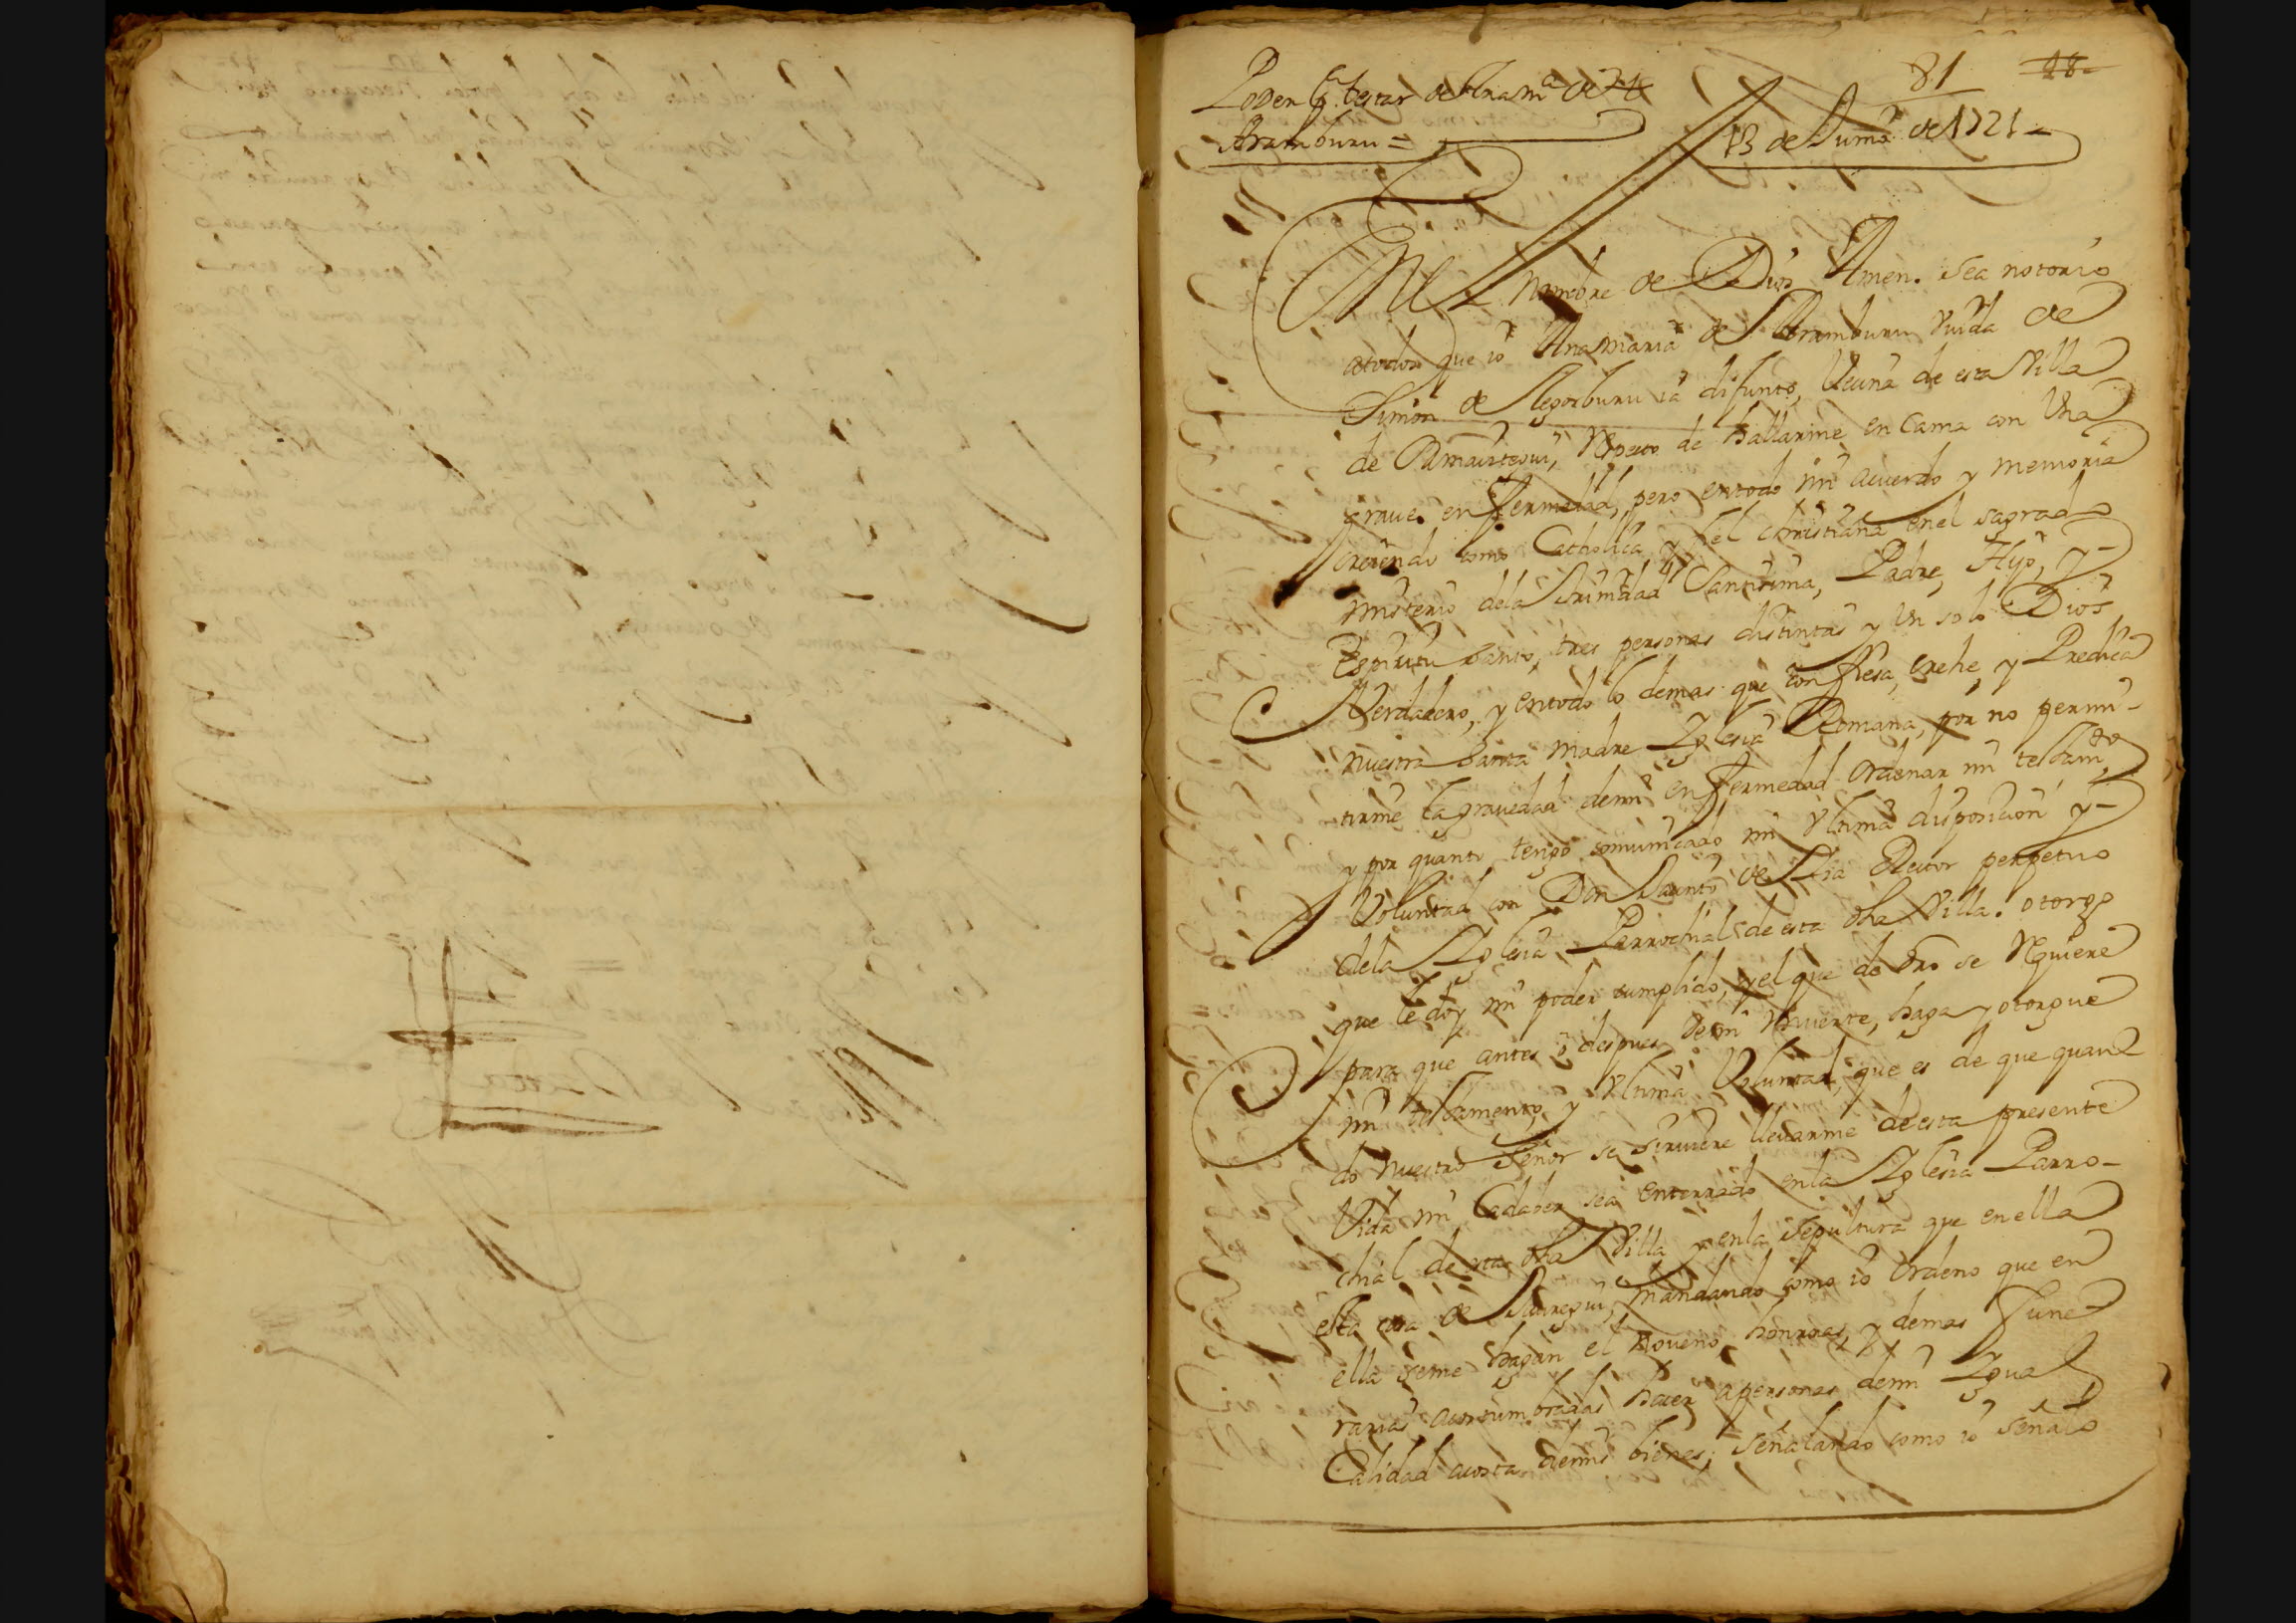 Poder pª testar de Ana mª de
Aramburu =
81 48
13 de Junio de 1721
En el Nombre de Dios Amen. Sea notorio
atodos que io Anamaria de Aramburu Viuda de
Simon de Legorburu ia difunto, Vecina de esta Villa
de Ormaiztegui, Respecto de hallarme en Cama con Una
graue enfermedad, pero entodo mi acuerdo y memoria
creiendo como Catholica y fiel christiana enel sagrado
misterio dela Trinidad Santisima, Padre, Hijo, y
Espiritu Santo, tres personas distintas y Un solo Dios
Verdadero, y entodo lo demas que confiesa, crehe, y Predica
nuestra Santa madre Iglesia Romana, por no permi-
tirme la gravedad demi enfermedad Ordenar mi testamto
y por quanto tengo comunicado mi Vltima disposicion y
Voluntad con Don Jacinto de Lia Rector perpetuo
dela Iglesia Parrochial de esta dha Villa. otorgo
que le doy mi poder cumplido, y el que de dro se Requiere
para que antes o despues demi Muerte, haga y otorgue
mi testamento, y Vltima Voluntad, que es de que quan-
do nuestro Señor se siruiere lleuarme de esta presente
Vida mi Cadaber sea enterrado enla Iglesia Parro-
chial de esta dha Villa y enla Sepultura que en ella
esta casa de Jauregui, mandando como io Ordeno que en
ella seme hagan el noueno, honrras, y demas fune-
rarias acostumbradas hacer apersonas demi Igual
Calidad acosta demis bienes; Señalando como io señalo